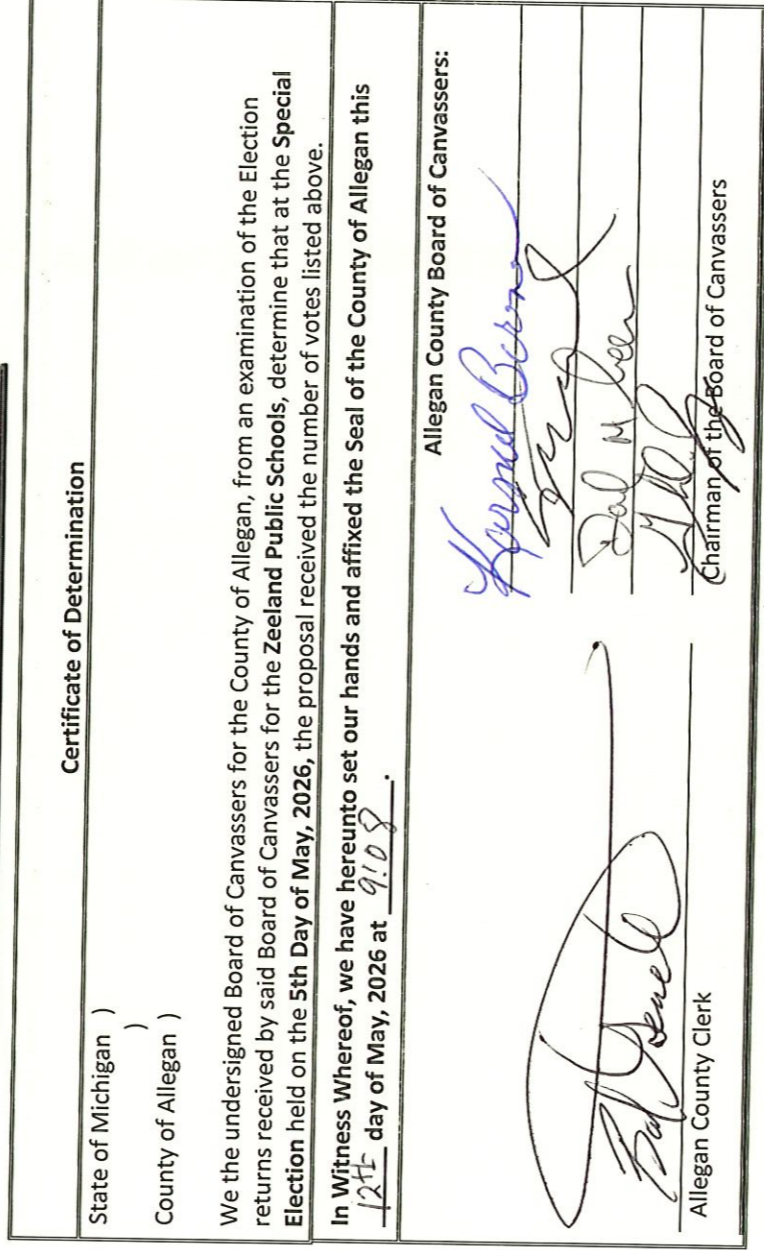 Certificate of Determination
State of Michigan )
)
County of Allegan )
We the undersigned Board of Canvassers for the County of Allegan, from an examination of the Election
returns received by said Board of Canvassers for the Zeeland Public Schools, determine that at the Special
Election held on the 5th Day of May, 2026, the proposal received the number of votes listed above.
In Witness Whereof, we have hereunto set our hands and affixed the Seal of the County of Allegan this
12th day of May, 2026 at 9:08.
Allegan County Board of Canvassers:
Allegan County Clerk
Chairman of the Board of Canvassers